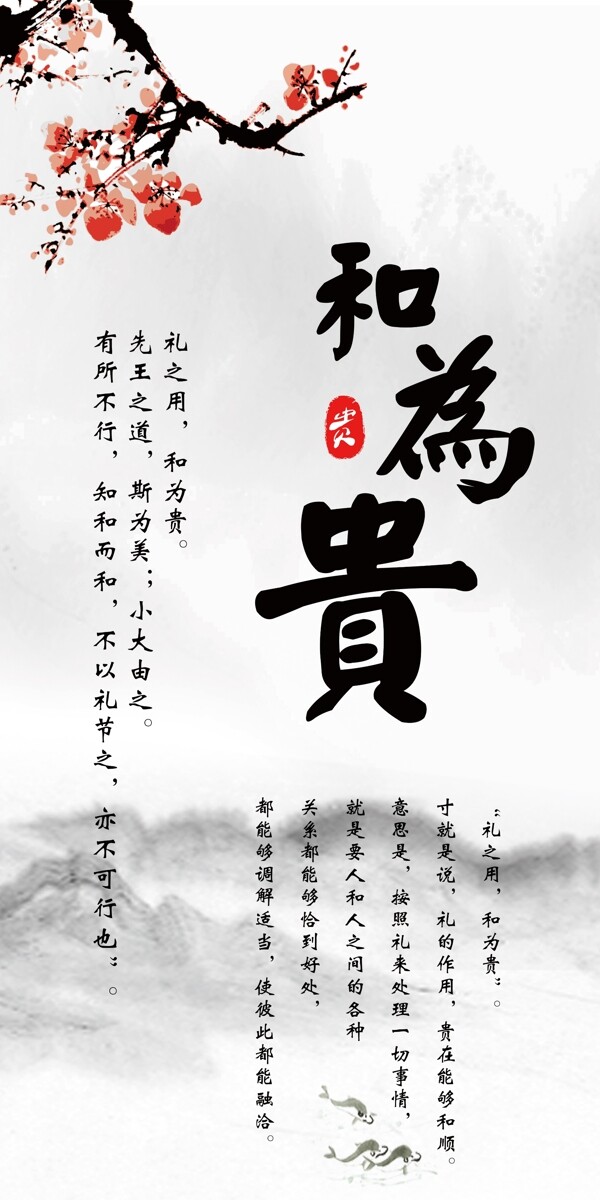 和為貴
贵
礼之用，和为贵。
先王之道，斯为美；小大由之。
有所不行，知和而和，不以礼节之，亦不可行也”。
“礼之用，和为贵”。
寸就是说，礼的作用，贵在能够和顺。
意思是，按照礼来处理一切事情，
就是要人和人之间的各种
关系都能够恰到好处，
都能够调解适当，使彼此都能融洽。